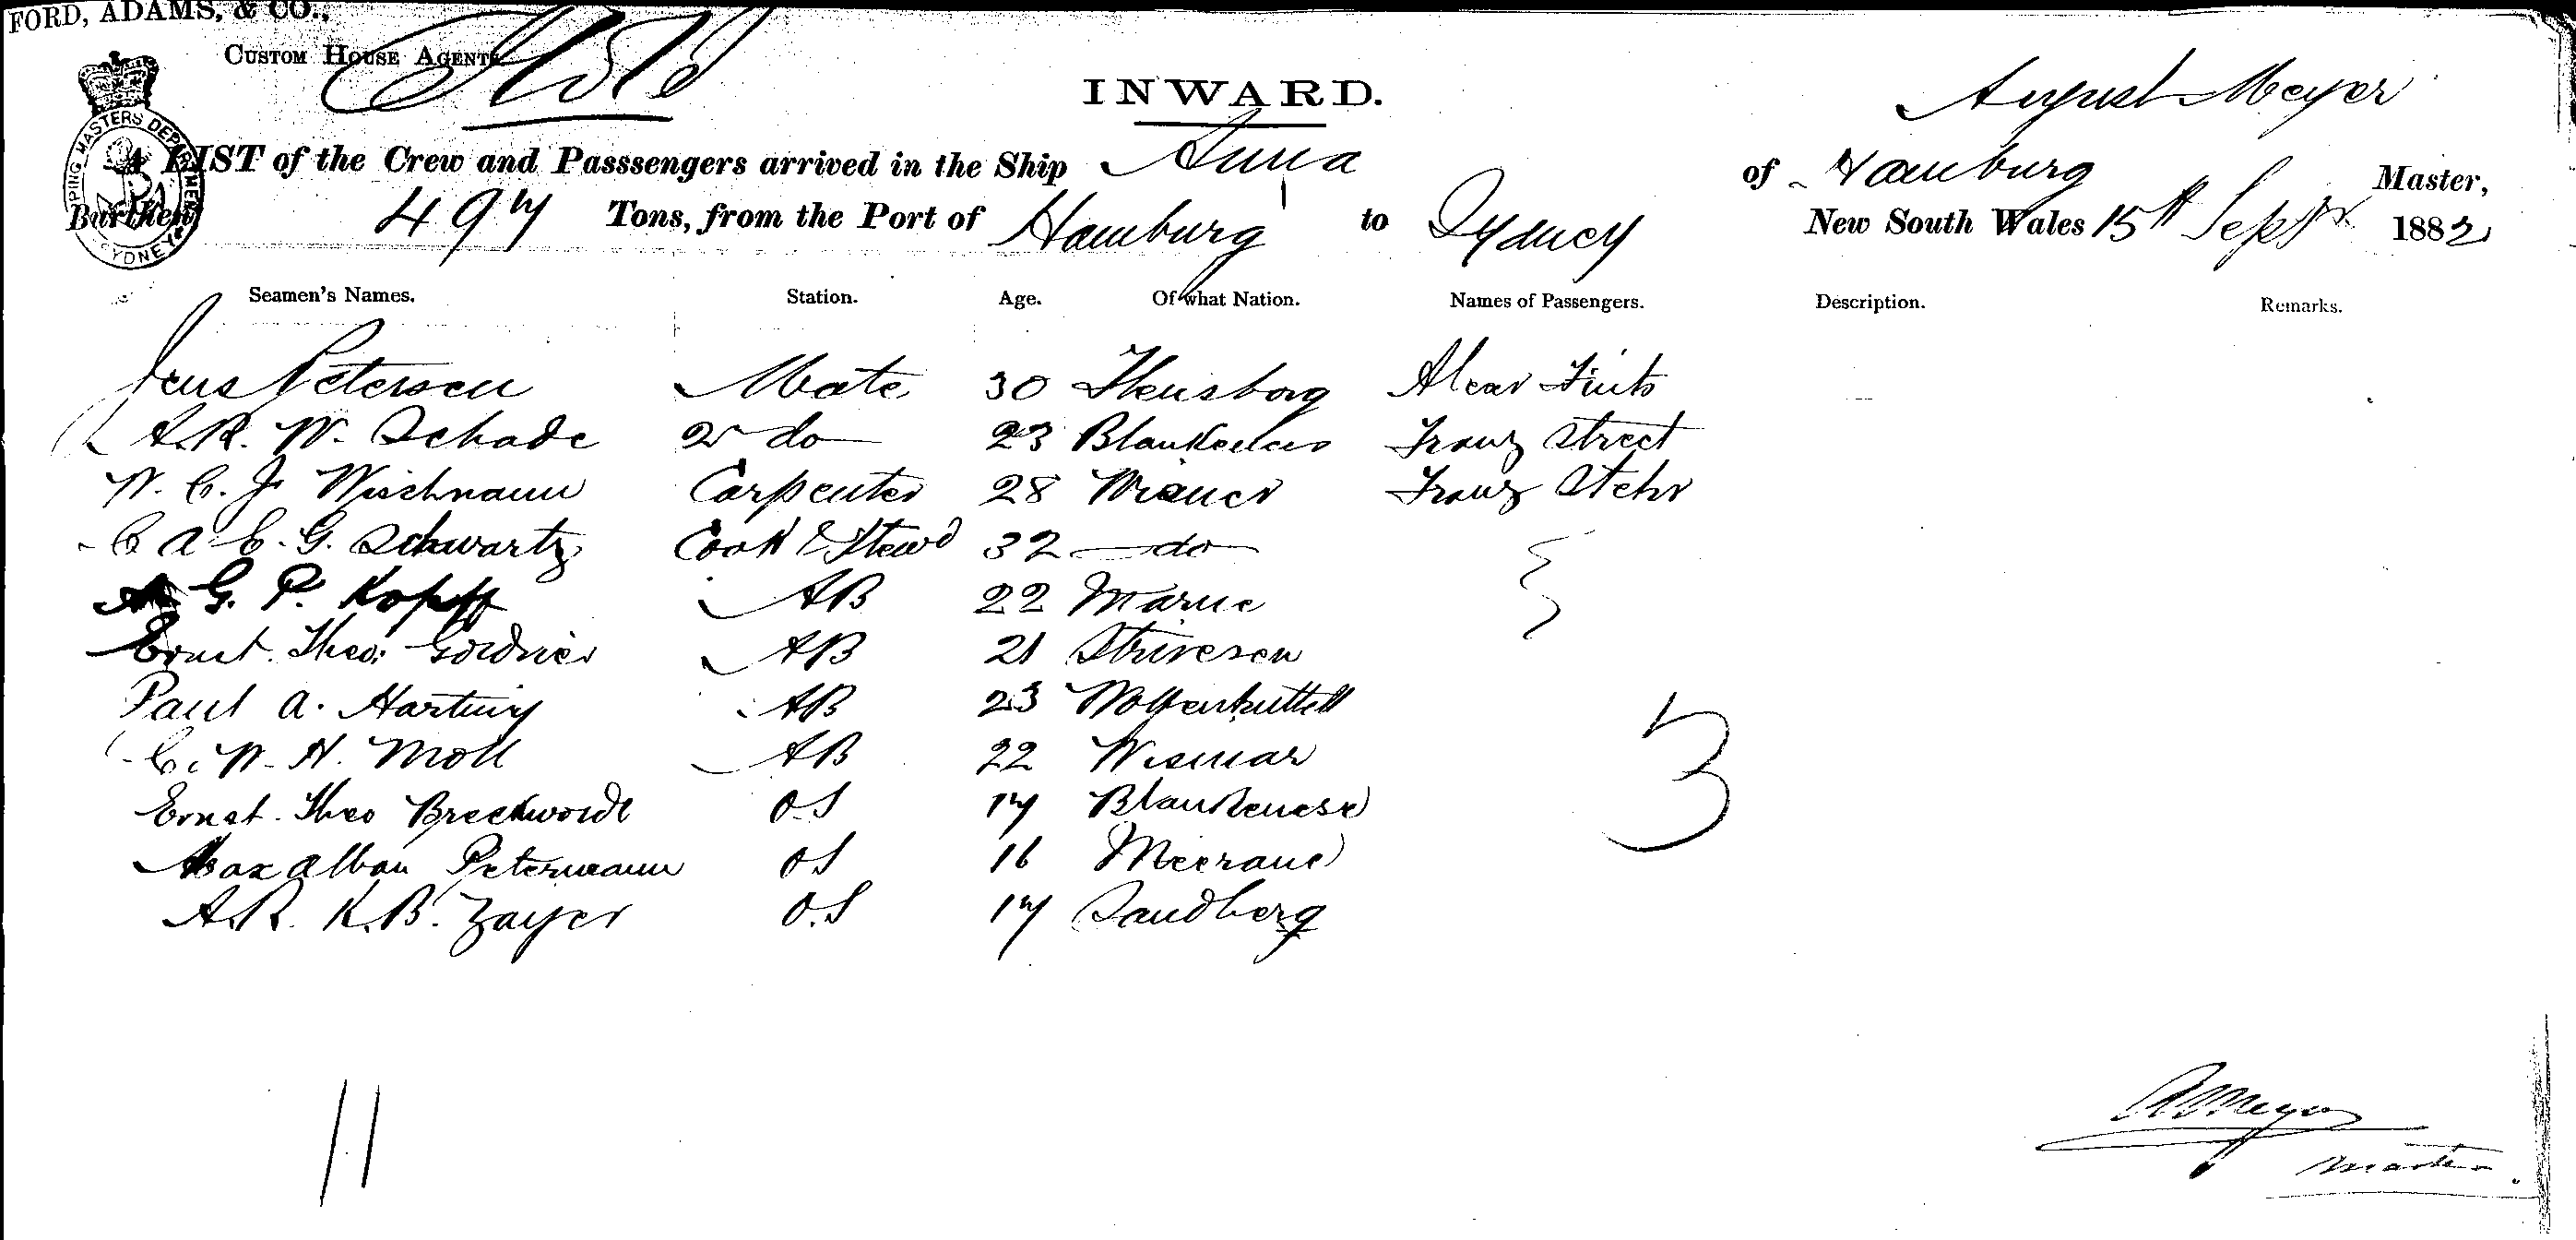 FORD, ADAMS, & CO.,
CUSTOM HOUSE AGENTS
INWARD.
August Meyer
A LIST of the Crew and Passsengers arrived in the Ship Anna of Hamburg Master,
Burthen 497 Tons, from the Port of Hamburg to Sydney New South Wales 15th Septr 1882
SHIPPING MASTERS DEPARTMENT SYDNEY
Seamen's Names. Station. Age. Of what Nation. Names of Passengers. Description. Remarks.
Jens Petersen Mate 30 Flensborg Alcar
A.R. W. Schade 2 do 23 Franz Street
W. C. J. Wischnann Carpenter 28 Franz Stehr
C A C. G. Schwartz Cook & Stewd 32 do
A G. P. Kopff AB 22 Marne
Ernst Theo: AB 21
Paul A. Hartwig AB 23 Wolfenbuttell
C. W. H. Moll AB 22 Wismar
Ernst Theo Breckwoldt OS 17 Blankenese
Max Alban Petermann OS 16 Meerane
A.R. K.B. Zayer O.S 17 Sandberg
3
11
A Meyer
Master